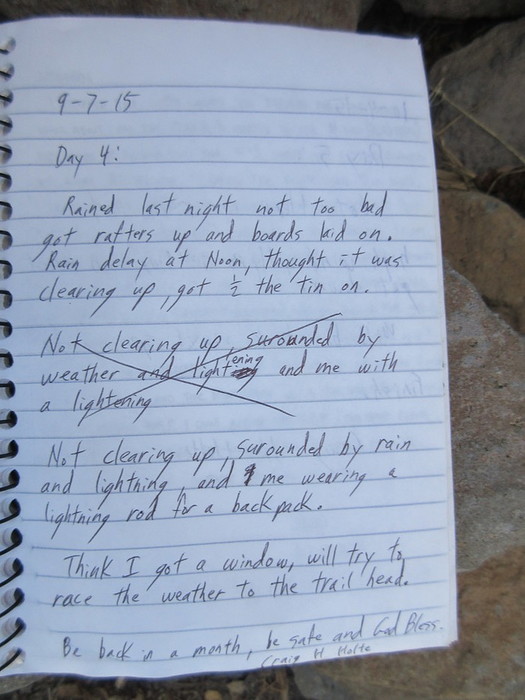 9-7-15
Day 4:
Rained last night not too bad
got rafters up and boards laid on.
Rain delay at Noon, thought it was
clearing up, got ½ the tin on.
Not clearing up, surounded by
weather and lightening and me with
a lightening
Not clearing up, surounded by rain
and lightning, and me wearing a
lightning rod for a back pack.
Think I got a window, will try to
race the weather to the trail head.
Be back in a month, be safe and God Bless.
Craig H Holte